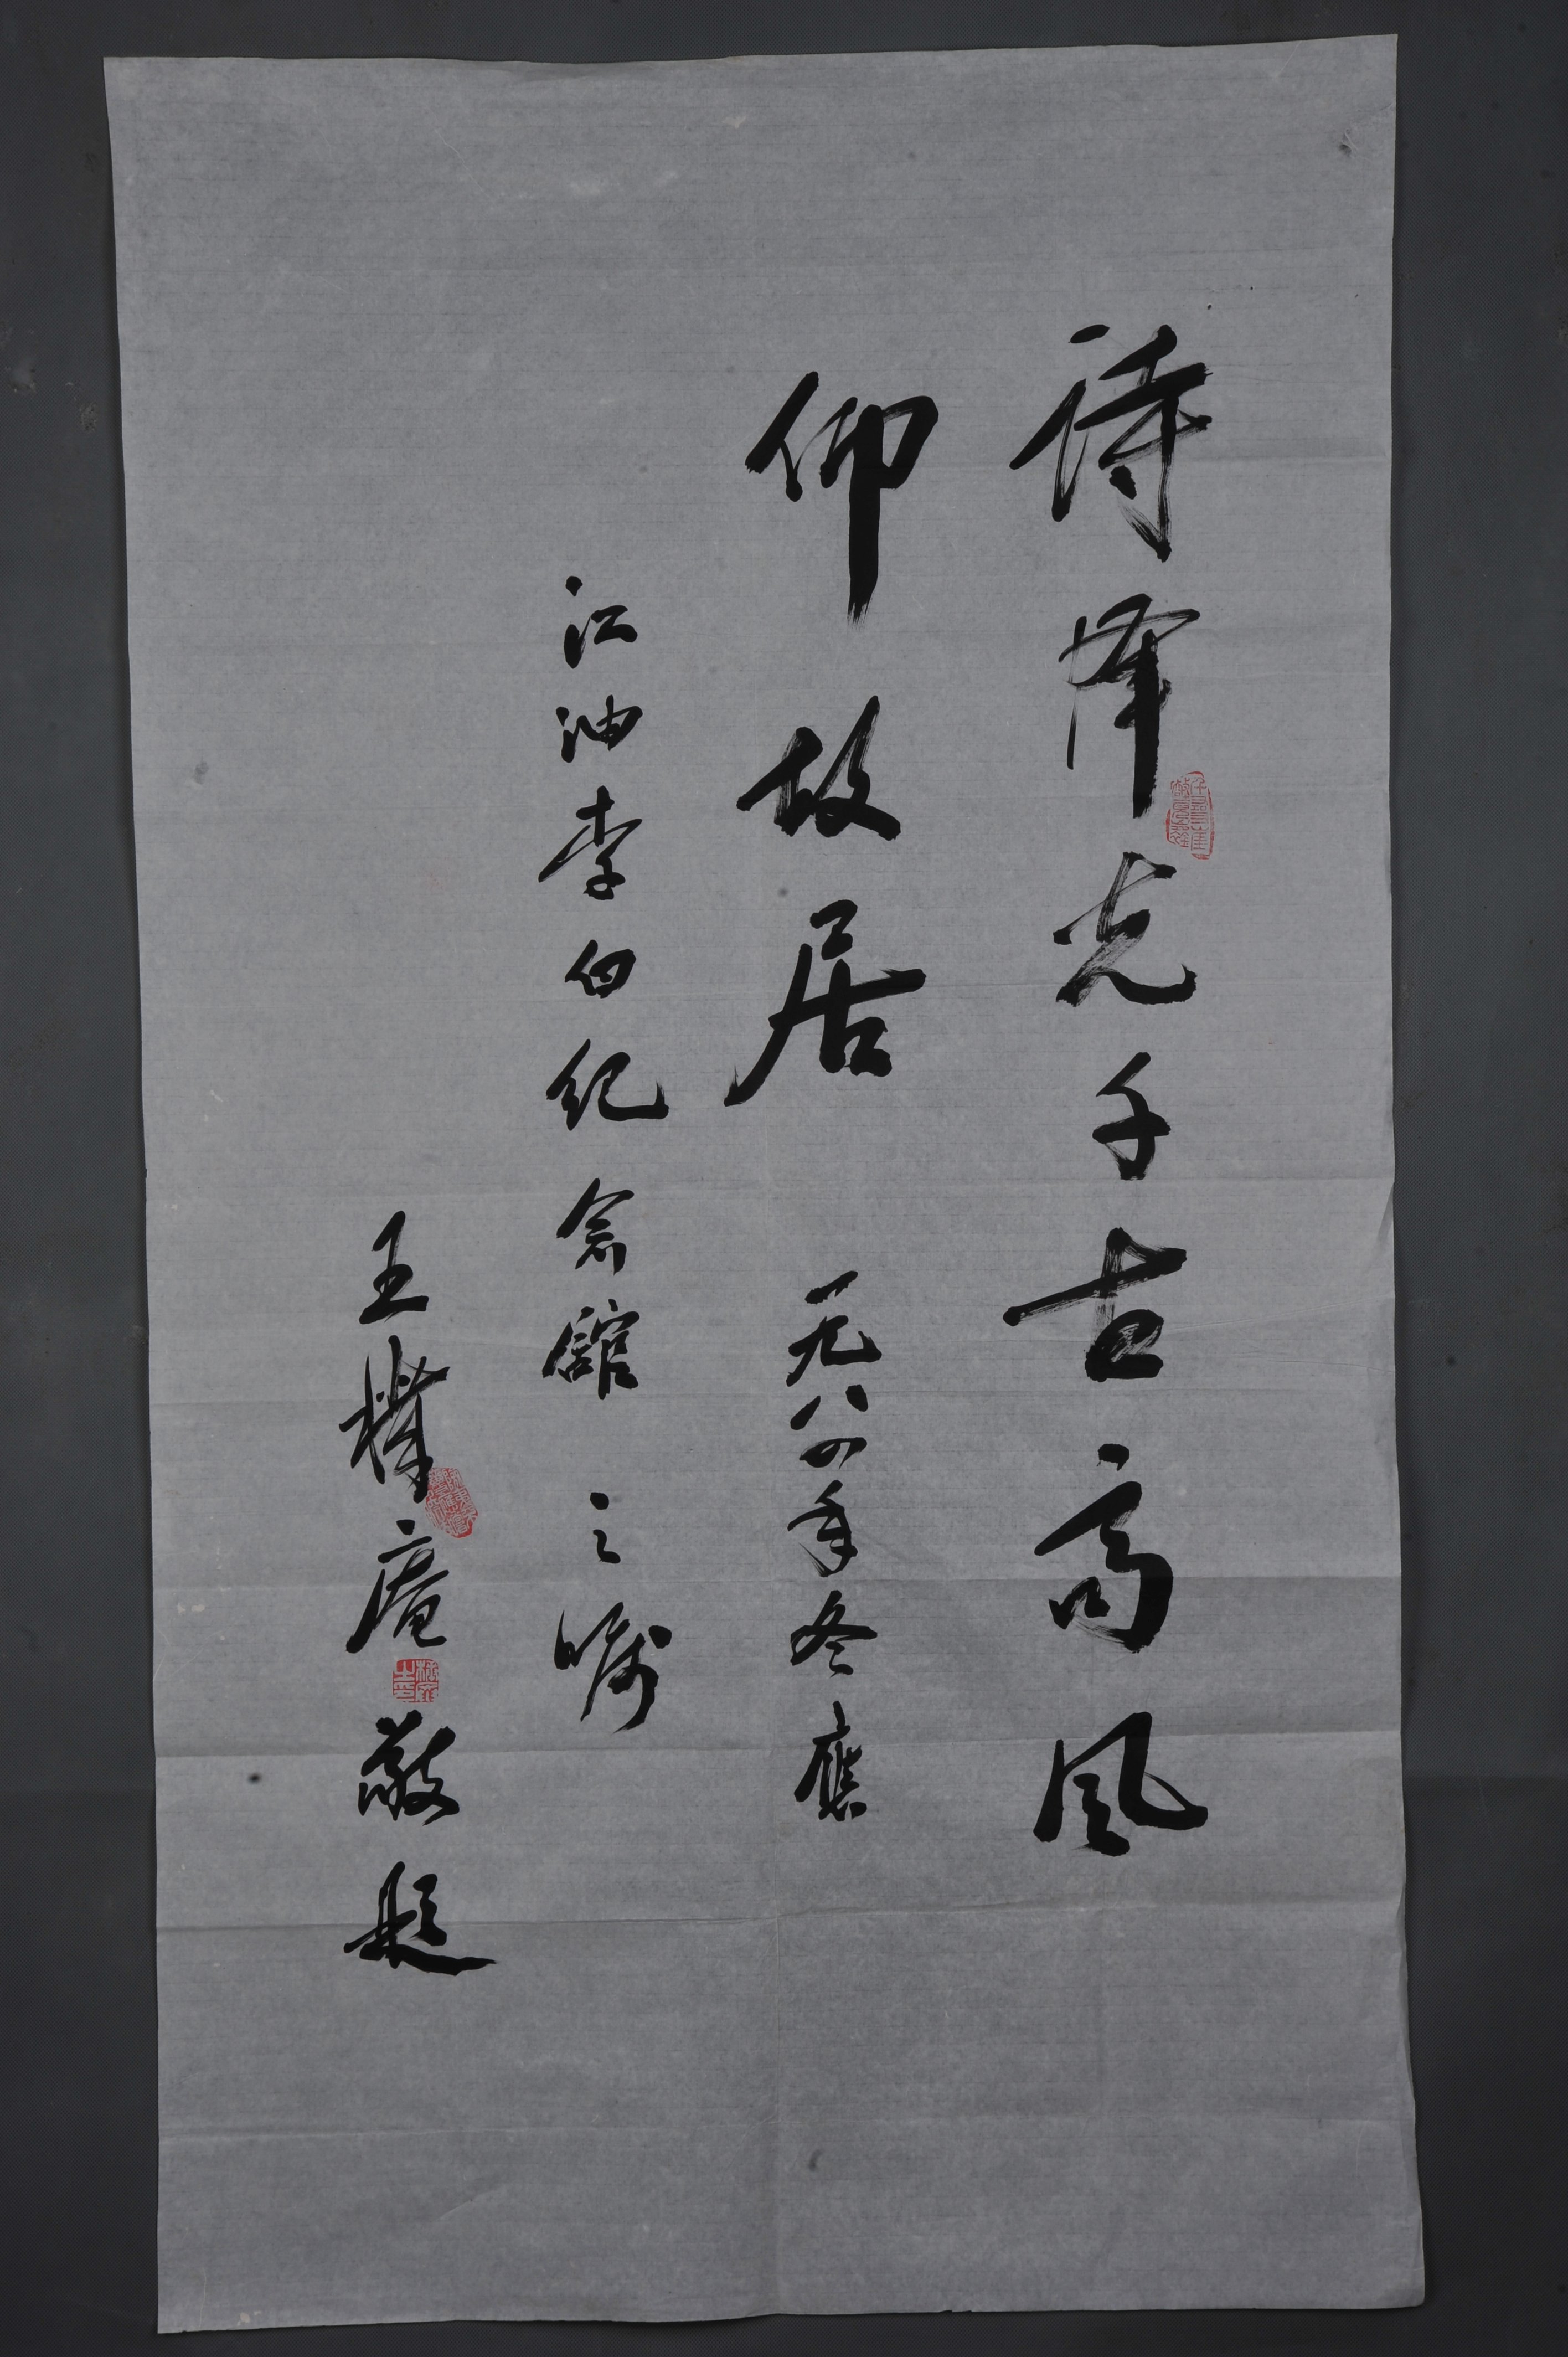 诗峯光千古高风
仰故居 一九八四年冬應
江油李白纪念館之嘱
王樸庵敬题